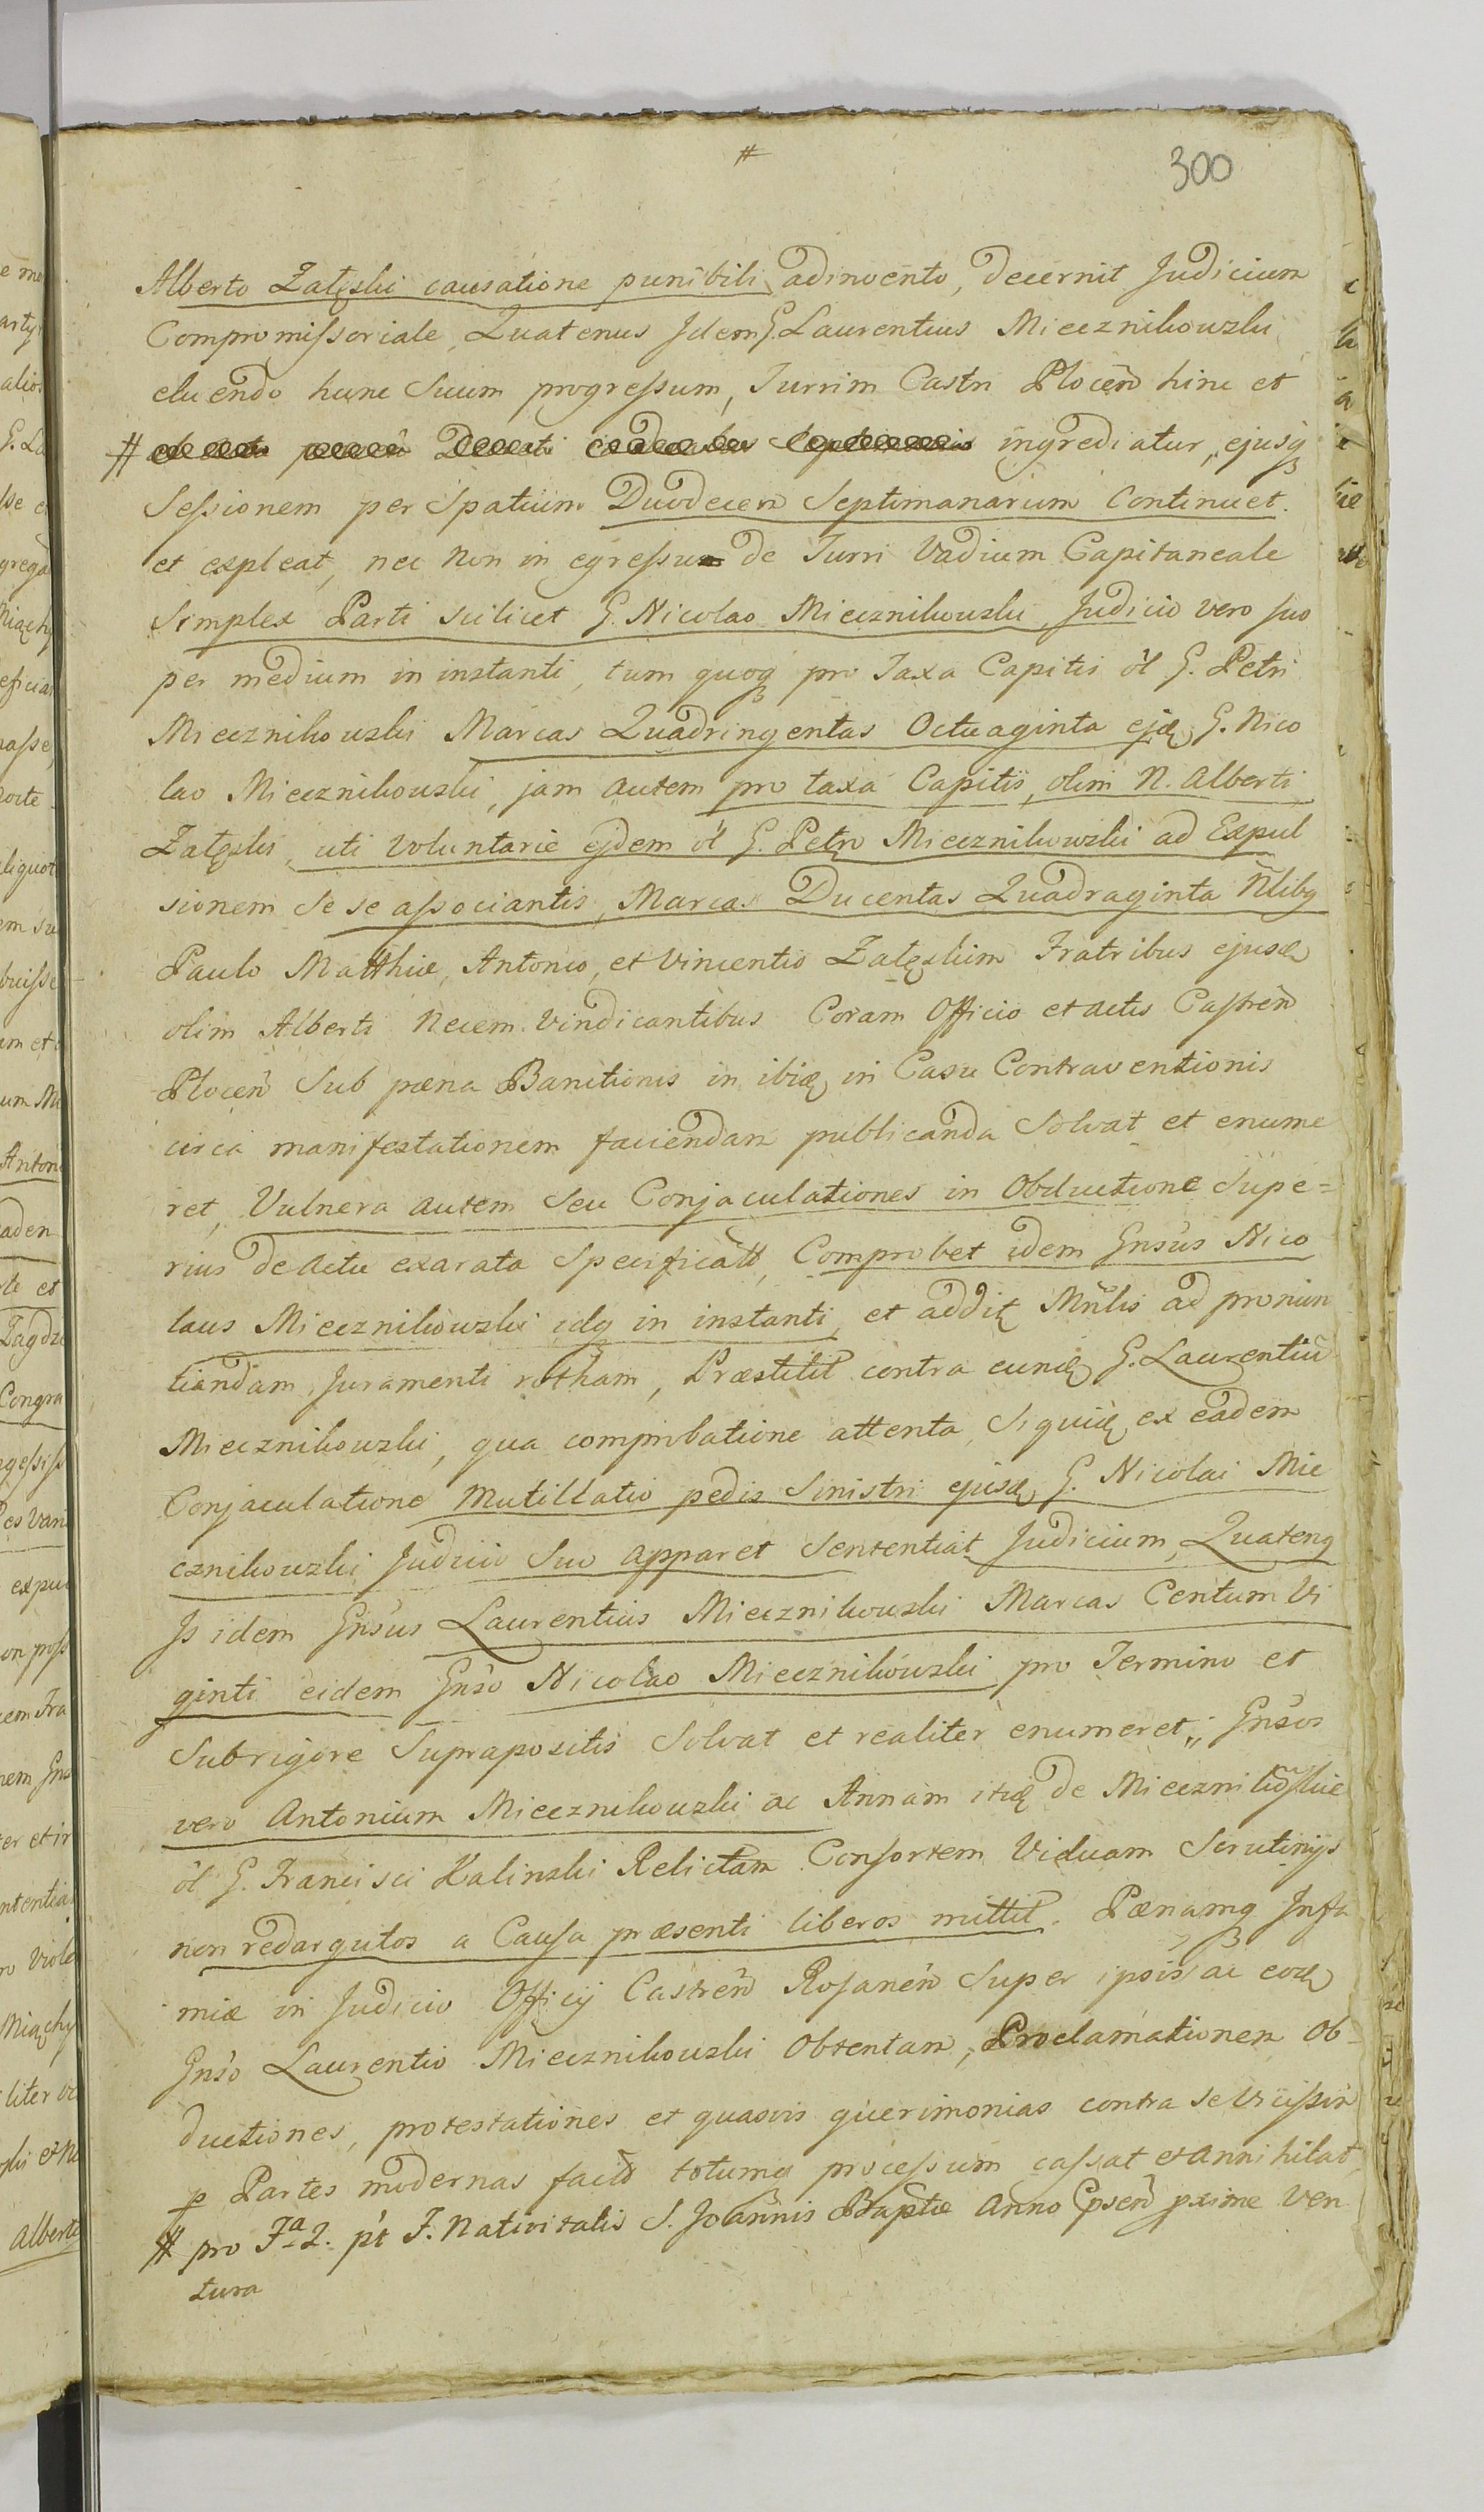 #
300
Alberto Załęski causatione punibili adinvento, decernit Judicium
Compromissoriale, Quatenus Idem G. Laurentius Miecznikowski
eluendo hunc Suum progressum, Turrim Castri Plocen̄ hinc et
# ingrediatur, ejusq
Sessionem per Spatium Duodecem Septimanarum Continuet
et expleat, nec non in egressu de Turri Vadium Capitaneale
Simplex Parti scilicet G. Nicolao Miecznikowski, Judicio vero suo
per medium in instanti, tum quoq pro Taxa Capitis ol G. Petri
Miecznikowski Marcas Quadringentas Octuaginta ejd G. Nico
lao Miecznikowski, jam autem pro taxa Capitis, olim N. Alberti
Załęski, uti Voluntarie ejdem ol G. Petro Miecznikowski ad Expul
sionem Se se associantis, Marcas Ducentas Quadraginta Nlibq
Paulo Matthiæ, Antonio, et Vincentio Załęskim Fratribus ejusd
olim Alberti Necem Vindicantibus Coram Officio et actis Castren̄
Plocen̄ Sub pæna Banitionis in ibid in Casu Contraventionis
circa manifestationem faciendam publicanda Solvat et enume
ret, Vulnera autem Seu Conjaculationes in Obductione Supe=
rius de Actu exarata Specificatt, Comprobet idem Gnsus Nico
laus Miecznikowski idq in instanti, et addit Mnlis ad pronun
tiandam Juramenti rotham, Præstitit contra eund G. Laurentiū
Miecznikowski, qua comprobatione attenta, Siquid ex eadem
Conjaculatione Mutillatio pedis Sinistri ejusd G. Nicolai Mie
cznikowski Judicio Suo apparet Sententiat Judicium, Quatenq
Is idem Gnsus Laurentius Miecznikowski Marcas Centum Vi
ginti eidem Gnso Nicolao Miecznikowski pro Termino et
Sub rigore Suprapositis Solvat et realiter enumeret; Gnsos
vero Antonium Miecznikowski ac Annam itid de Mieczniko͞wskie
ol G. Francisci Kalinski Relictam Consortem Viduam Scrutinijs
non redargutos a Causa præsenti liberos mittit. Pænamq Infa
miæ in Judicio Officij Castren̄ Rosanen̄ Super ipsis ac eod
Gnso Laurentio Miecznikowski Obtentam, Proclamationem Ob
ductiones, protestationes et quasvis querimonias contra Se Vicissim
p Partes modernas fact totumq processum cassat et annihilat
# pro Fa 2. pt F. Nativitatis S. Joannis Baptæ Anno Epsen̄ pxime Ven
tura